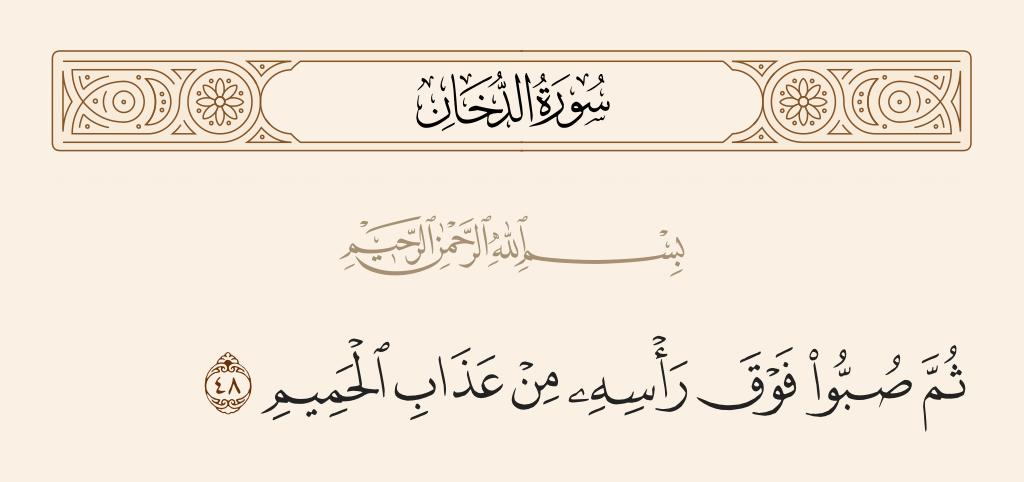 سُورَةُ الدُّخَانِ
بِسْمِ ٱللَّهِ ٱلرَّحْمَٰنِ ٱلرَّحِيمِ
ثُمَّ صُبُّوا۟ فَوْقَ رَأْسِهِۦ مِنْ عَذَابِ ٱلْحَمِيمِ ٤٨